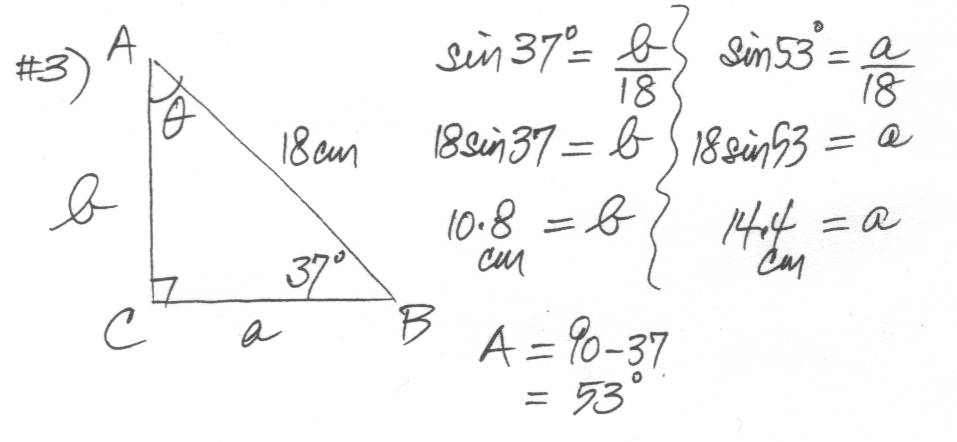 #3)
A
θ
b
18cm
37°
C
a
B
sin37° = b/18
18sin37 = b
10.8 = b
cm
sin53° = a/18
18sin53 = a
14.4 = a
cm
A = 90-37
= 53°